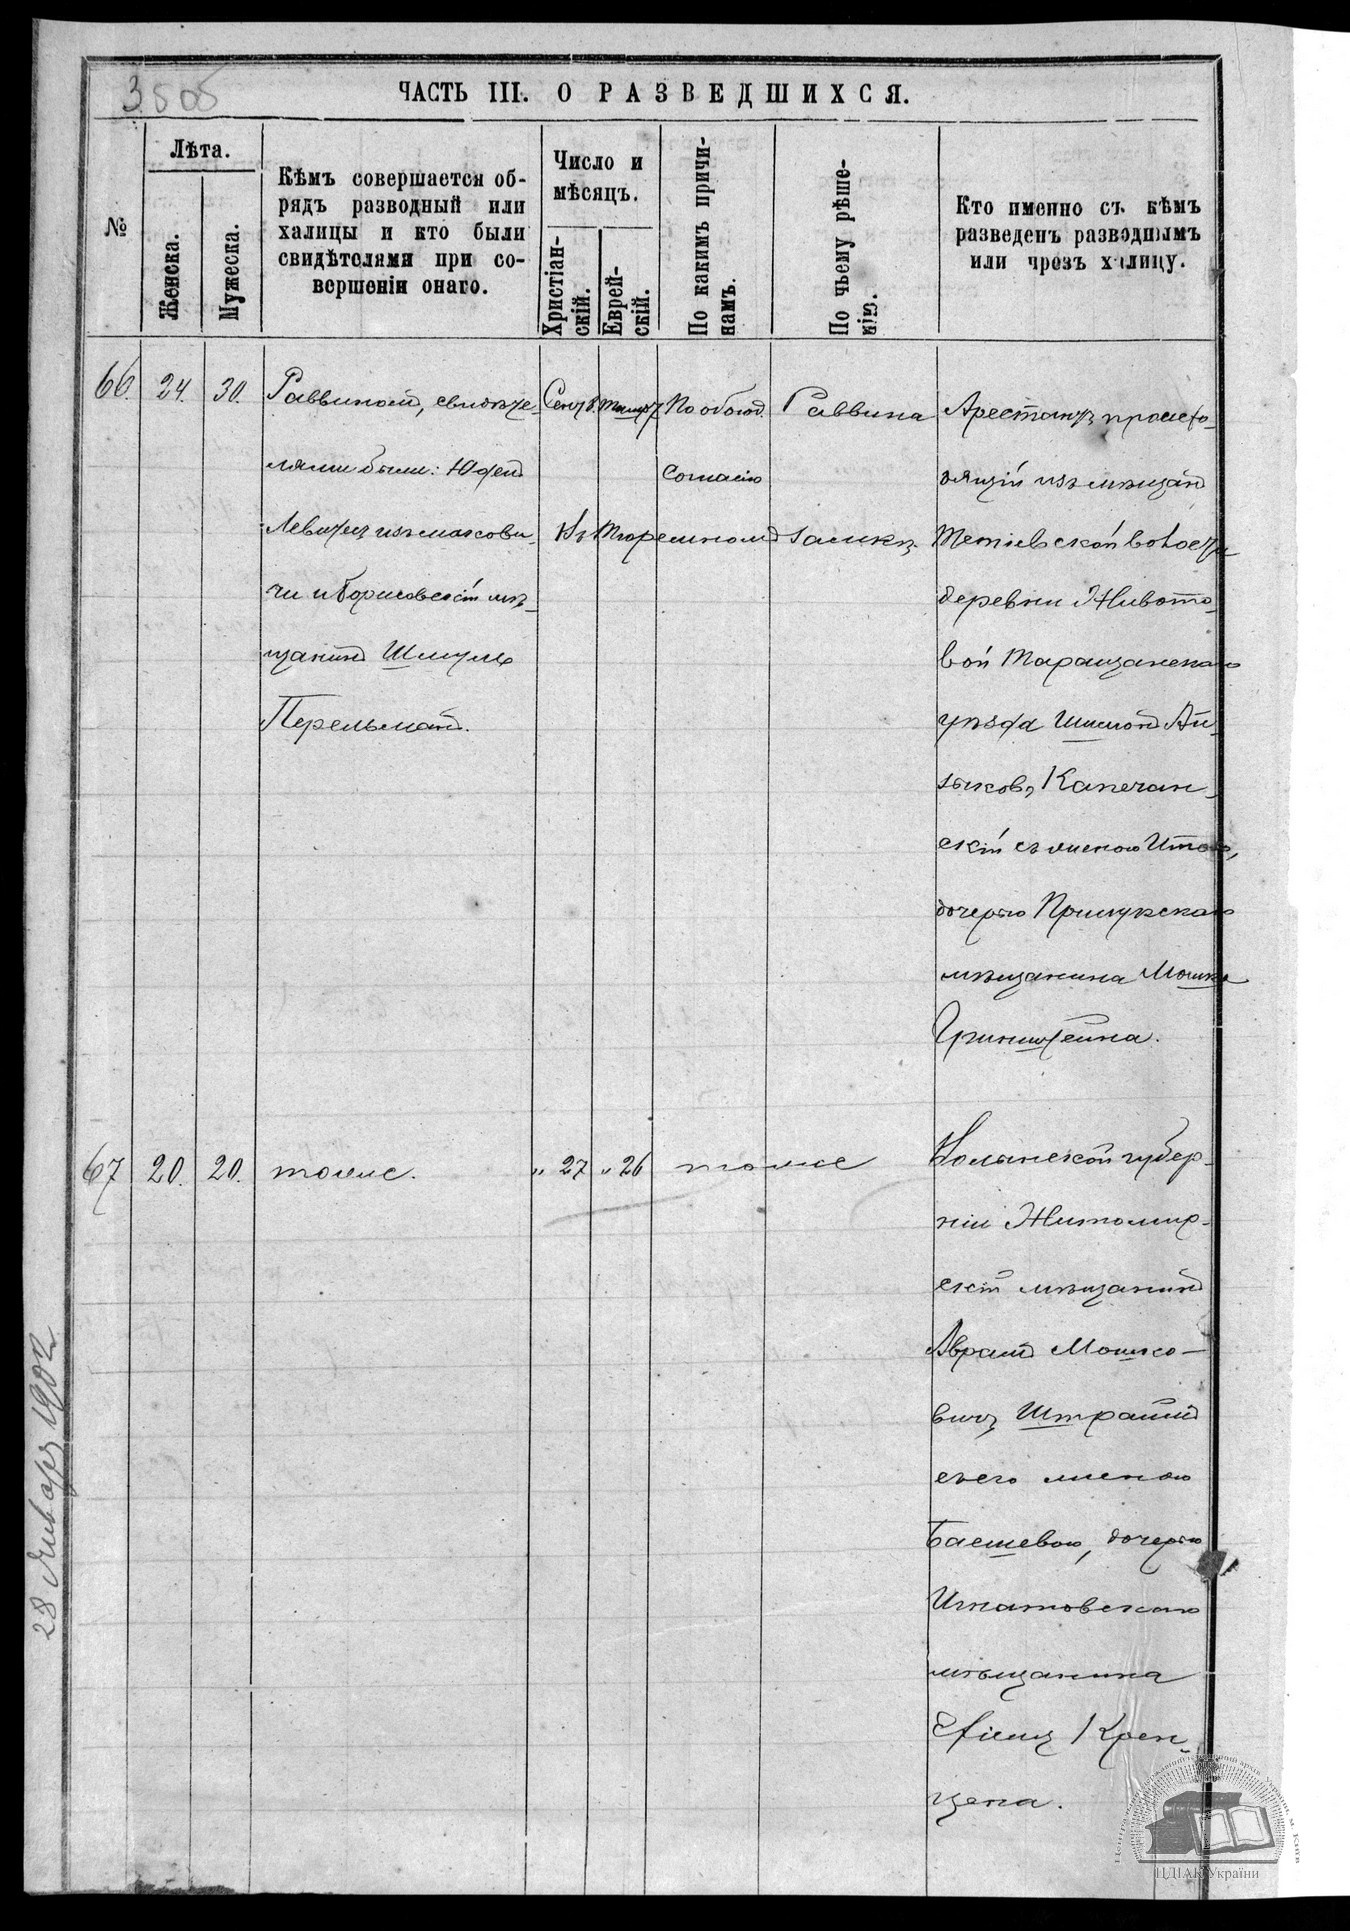 3505
ЧАСТЬ III. О РАЗВЕДШИХСЯ.
№
Лѣта.
Женска.
Мужеска.
Кѣмъ совершается об-
рядъ разводный или
халицы и кто были
свидѣтелями при со-
вершеніи онаго.
Число и
мѣсяцъ.
Христіан-
скій.
Еврей-
скій.
По какимъ причи-
намъ.
По чьему рѣше-
нію.
Кто именно съ кѣмъ
разведенъ разводнымъ
или чрезъ халицу.
66. 24. 30. Раввиномъ, свидѣте-
лями были:
Левитъ изъ
чи и Борисовскій мѣ-
щанинъ Шмуль
Перельманъ.
По обоюд.
согласію
Раввина
Въ Тюремномъ замкѣ.
Арестантъ происхо-
дящій изъ мѣщанъ
Тетіевской волости
деревни Живото-
вой Таращанскаго
уѣзда Шимонъ Ай-
зыковъ Капечан-
скій съ женою Итою,
дочерью Прилукскаго
мѣщанина Мошка
Гринштейна.
67 20. 20. тоже. „ 27 „ 26 тоже
Волынской губер-
ніи Житомир-
скій мѣщанинъ
Аврамъ Мошко-
вичъ Штраймъ
съ его женою
Басшевою, дочерью
Игнатовскаго
мѣщанина
Крен-
цена.
28 Январъ 1902
ЦДІАК України